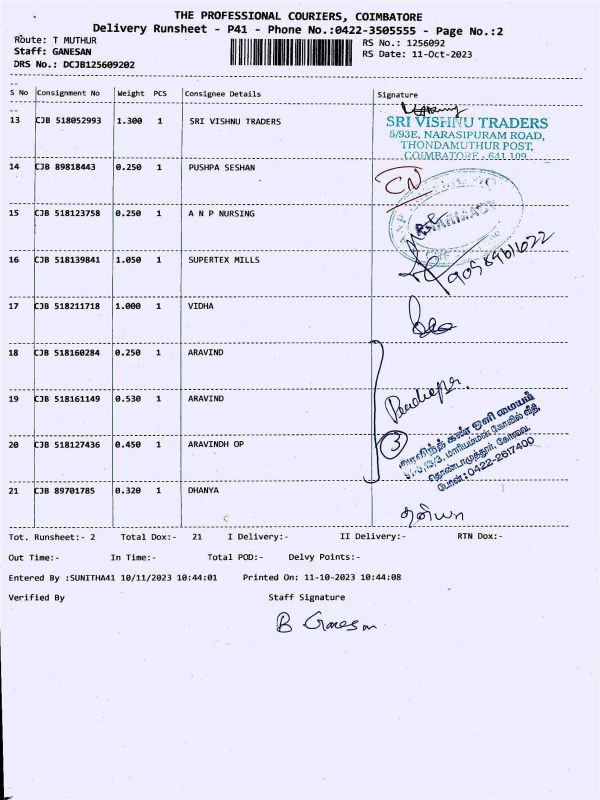 THE PROFESSIONAL COURIERS, COIMBATORE
Delivery Runsheet - P41 - Phone No.:0422-3505555 - Page No.:2
Route: T MUTHUR
RS No.: 1256092
Staff: GANESAN
RS Date: 11-Oct-2023
DRS No.: DCJB125609202
S No Consignment No Weight PCS Consignee Details Signature
13 CJB 518052993 1.300 1 SRI VISHNU TRADERS
SRI VISHNU TRADERS
5/93E, NARASIPURAM ROAD,
THONDAMUTHUR POST,
COIMBATORE - 641 109.
14 CJB 89818443 0.250 1 PUSHPA SESHAN
CN
15 CJB 518123758 0.250 1 A N P NURSING
16 CJB 518139841 1.050 1 SUPERTEX MILLS
17 CJB 518211718 1.000 1 VIDHA
18 CJB 518160284 0.250 1 ARAVIND
19 CJB 518161149 0.530 1 ARAVIND
20 CJB 518127436 0.450 1 ARAVINDH OP
3
அரவிந்த் கண் ஒளி மையம்
மாரியம்மன் கோவில் வீதி,
தொண்டாமுத்தூர், கோவை.
போன் : 0422-2617400
21 CJB 89701785 0.320 1 DHANYA
தன்யா
Tot. Runsheet:- 2 Total Dox:- 21 I Delivery:- II Delivery:- RTN Dox:-
Out Time:- In Time:- Total POD:- Delvy Points:-
Entered By :SUNITHA41 10/11/2023 10:44:01 Printed On: 11-10-2023 10:44:08
Verified By Staff Signature
B Ganesan